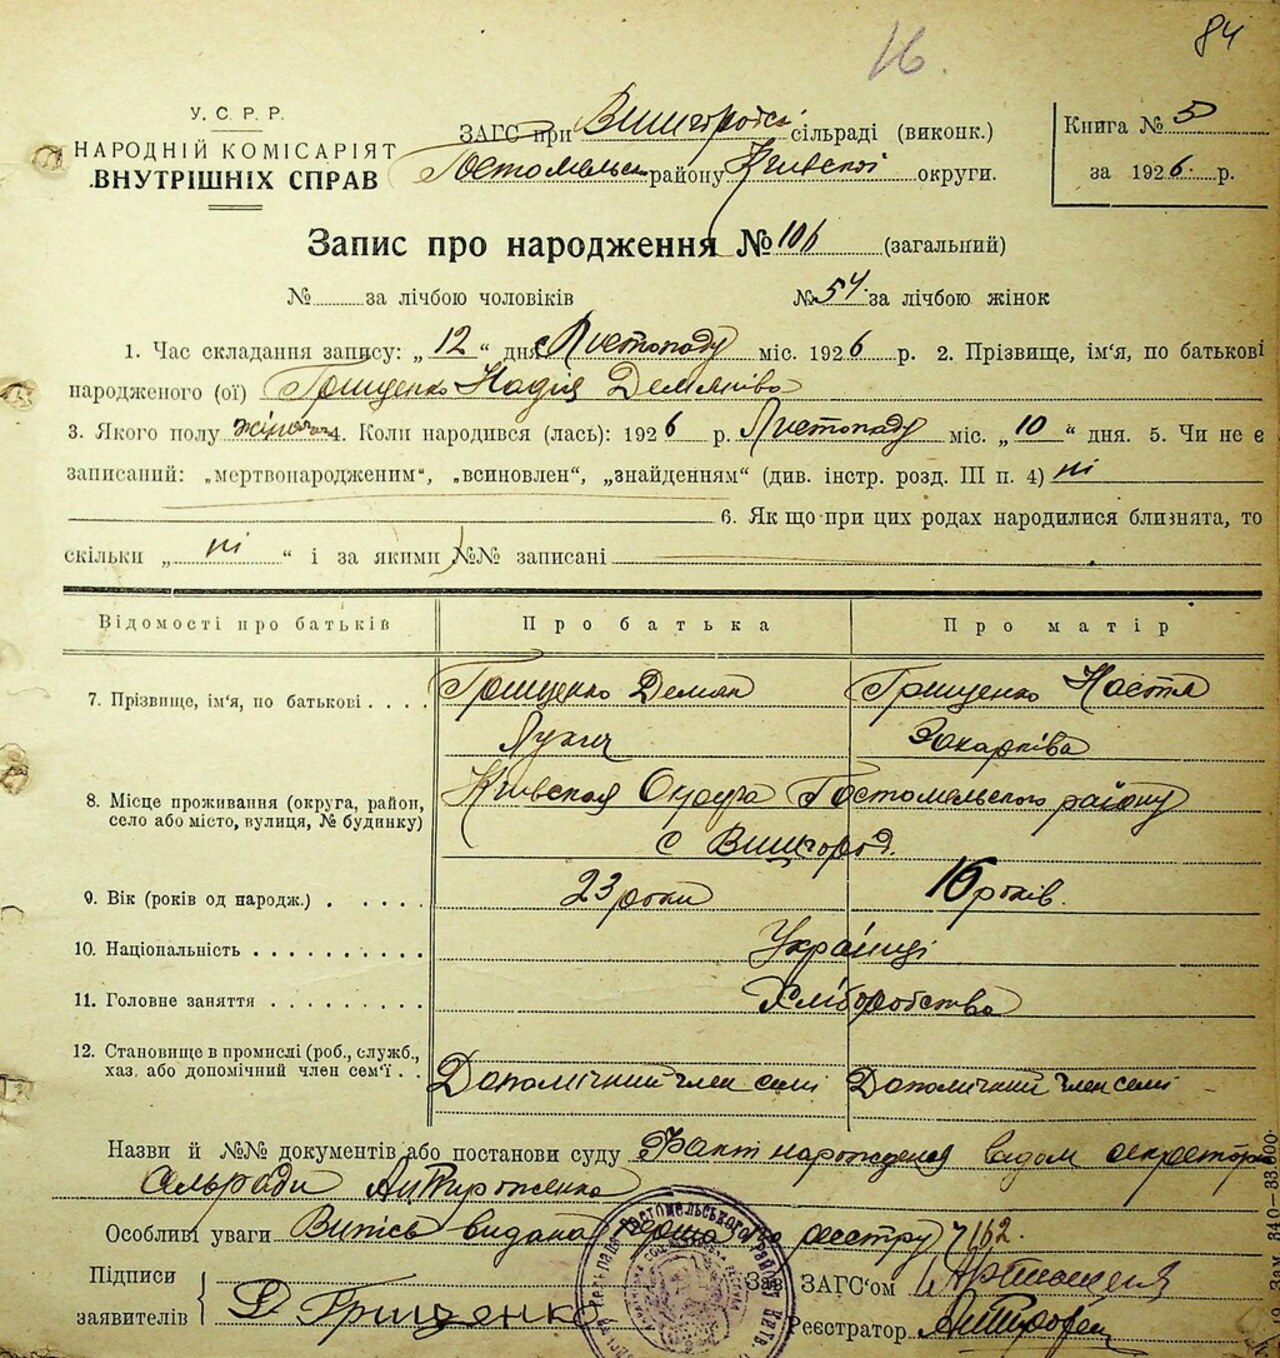 16.
84
У. С. Р. Р.
НАРОДНІЙ КОМІСАРІЯТ
ВНУТРІШНІХ СПРАВ
ЗАГС при Вишгородск сільраді (виконк.)
Гостомельск району Київской округи.
Книга № 5
за 1926 р.
Запис про народження № 106 (загальний)
№ за лічбою чоловіків № 54 за лічбою жінок
1. Час складання запису: „ 12 “ дня Листопаду міс. 1926 р. 2. Прізвище, ім'я, по батькові
народженого (ої) Грищенко Надія Демянівa
3. Якого полу жіноч 4. Коли народився (лась): 1926 р. Листопаду міс. „ 10 “ дня. 5. Чи не є
записаний: „мертвонародженим“, „всиновлен“, „знайденням“ (див. інстр. розд. III п. 4) ні
6. Як що при цих родах народилися близнята, то
скільки „ ні “ і за якими №№ записані
Відомості про батьків Про батька Про матір
7. Прізвище, ім'я, по батькові Грищенко Демян Грищенко Настя
Лукич Захарківа
8. Місце проживання (округа, район, Київская Округа Гостомельского району
село або місто, вулиця, № будинку) с Вишгород.
9. Вік (років од народж.) 23 роки 16 років.
10. Національність Українці
11. Головне заняття Хліборобство
12. Становище в промислі (роб., служб.,
хаз. або допомічний член сем'ї Допомічний член семі Допомічний член семі
Назви й №№ документів або постанови суду Факт народження видом секретарю
сільради
Особливі уваги Випісь видана перша по реєстру 7162.
Підписи
заявителів Д Грищенко
Зав. ЗАГС'ом
Реєстратор